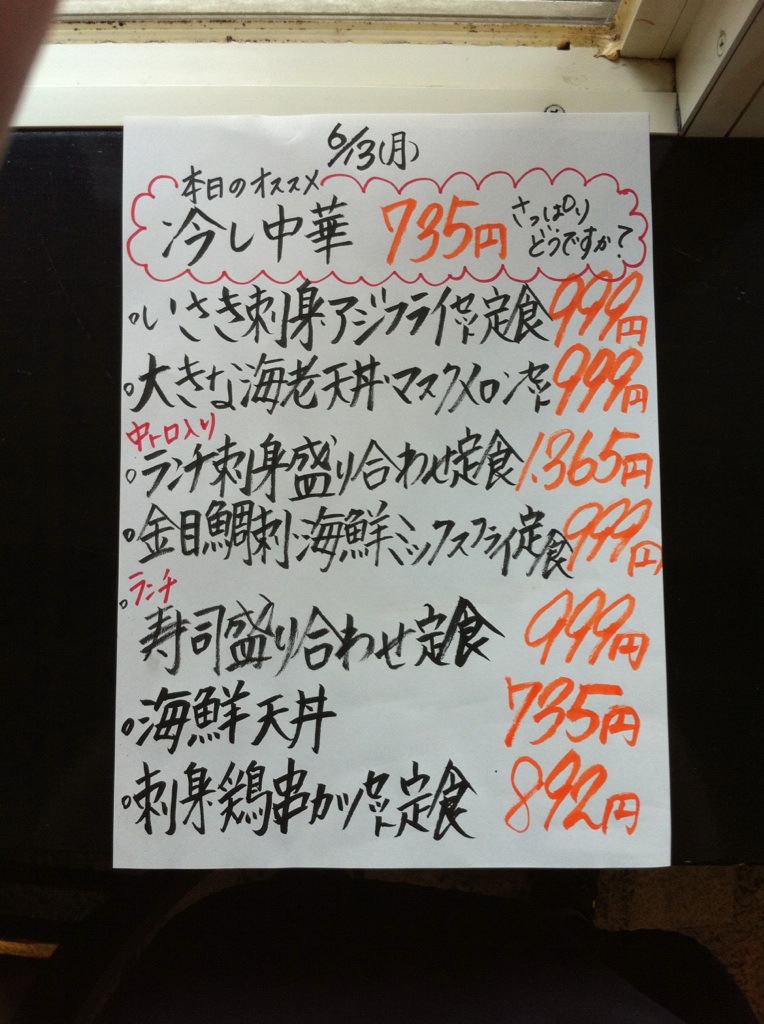 6/13(月)
本日のオススメ
冷し中華 735円 さっぱり
どうですか?
。いさき刺身アジフライセット定食 999円
。大きな海老天丼・マスクメロンセット 999円
中トロ入り
。ランチ刺身盛り合わせ定食 1.365円
。金目鯛刺海鮮ミックスフライ定食 999円
ランチ
。寿司盛り合わせ定食 999円
。海鮮天丼 735円
。刺身鶏串カツセット定食 892円